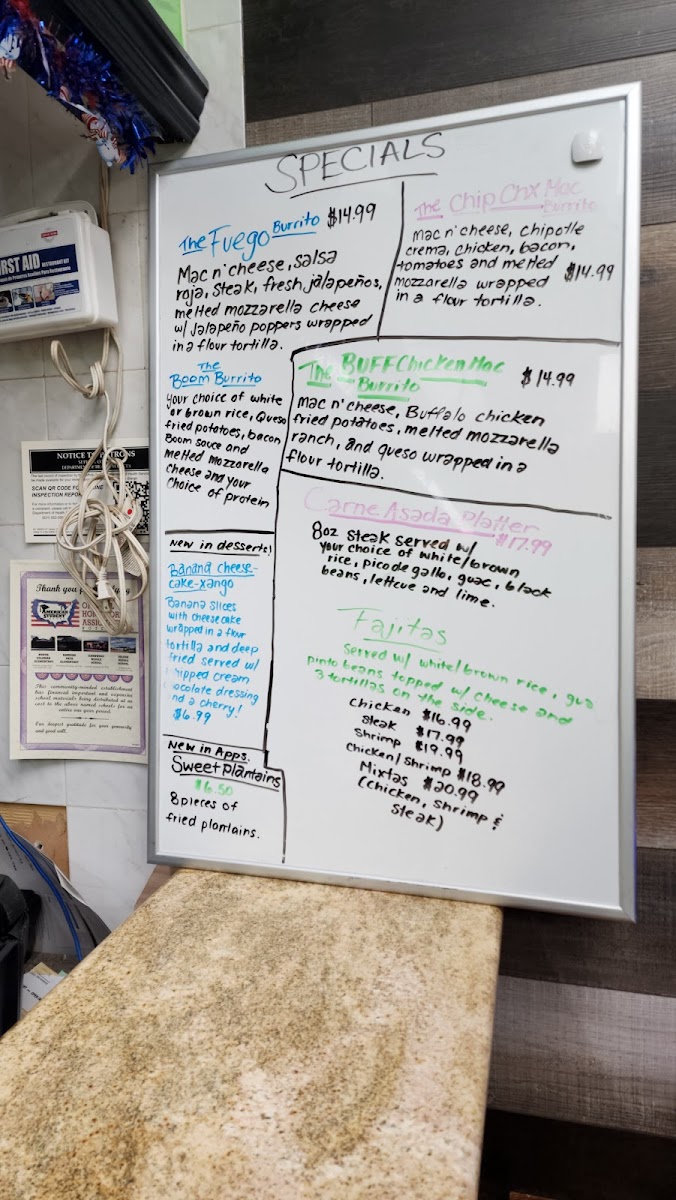 SPECIALS
The Fuego Burrito $14.99
Mac n' cheese, salsa
roja, steak, fresh jalapeños,
melted mozzarella cheese
w/ Jalapeño poppers wrapped
in a flour tortilla.
The Chip Chx Mac
Burrito
Mac n' cheese, chipotle
crema, chicken, bacon,
tomatoes and melted
mozzarella wrapped $14.99
in a flour tortilla.
The
Boom Burrito
Your choice of white
or brown rice, Queso
fried potatoes, bacon
Boom sauce and
melted Mozzarella
cheese and your
choice of protein
The BUFF Chicken Mac
Burrito $14.99
Mac n' cheese, Buffalo chicken
fried potatoes, melted mozzarella
ranch, and queso wrapped in a
flour tortilla.
Carne Asada Platter
$17.99
8oz steak served w/
your choice of white/brown
rice, pico de gallo, guac, black
beans, lettcue and lime.
New in desserts!
Banana cheese-
cake-xango
Banana slices
with cheesecake
wrapped in a flour
tortilla and deep
fried served w/
whipped cream
chocolate dressing
and a cherry!
$6.99
Fajitas
Served w/ white/brown rice, gua
pinto beans topped w/ cheese and
3 tortillas on the side.
Chicken $16.99
Steak $17.99
Shrimp $19.99
Chicken/Shrimp $18.99
Mixtas $20.99
(Chicken, Shrimp &
Steak)
New in Apps.
Sweet plantains
$6.50
8 pieces of
fried plantains.
FIRST AID
NOTICE TO PATRONS
SCAN QR CODE FOR
INSPECTION REPOR
Thank you
AMERICAN
STUDENT
This community-minded establishment
has financed important and expensive
school materials being distributed at no
cost to the above named schools for an
entire one year period.
Our deepest gratitude for your generosity
and good will.